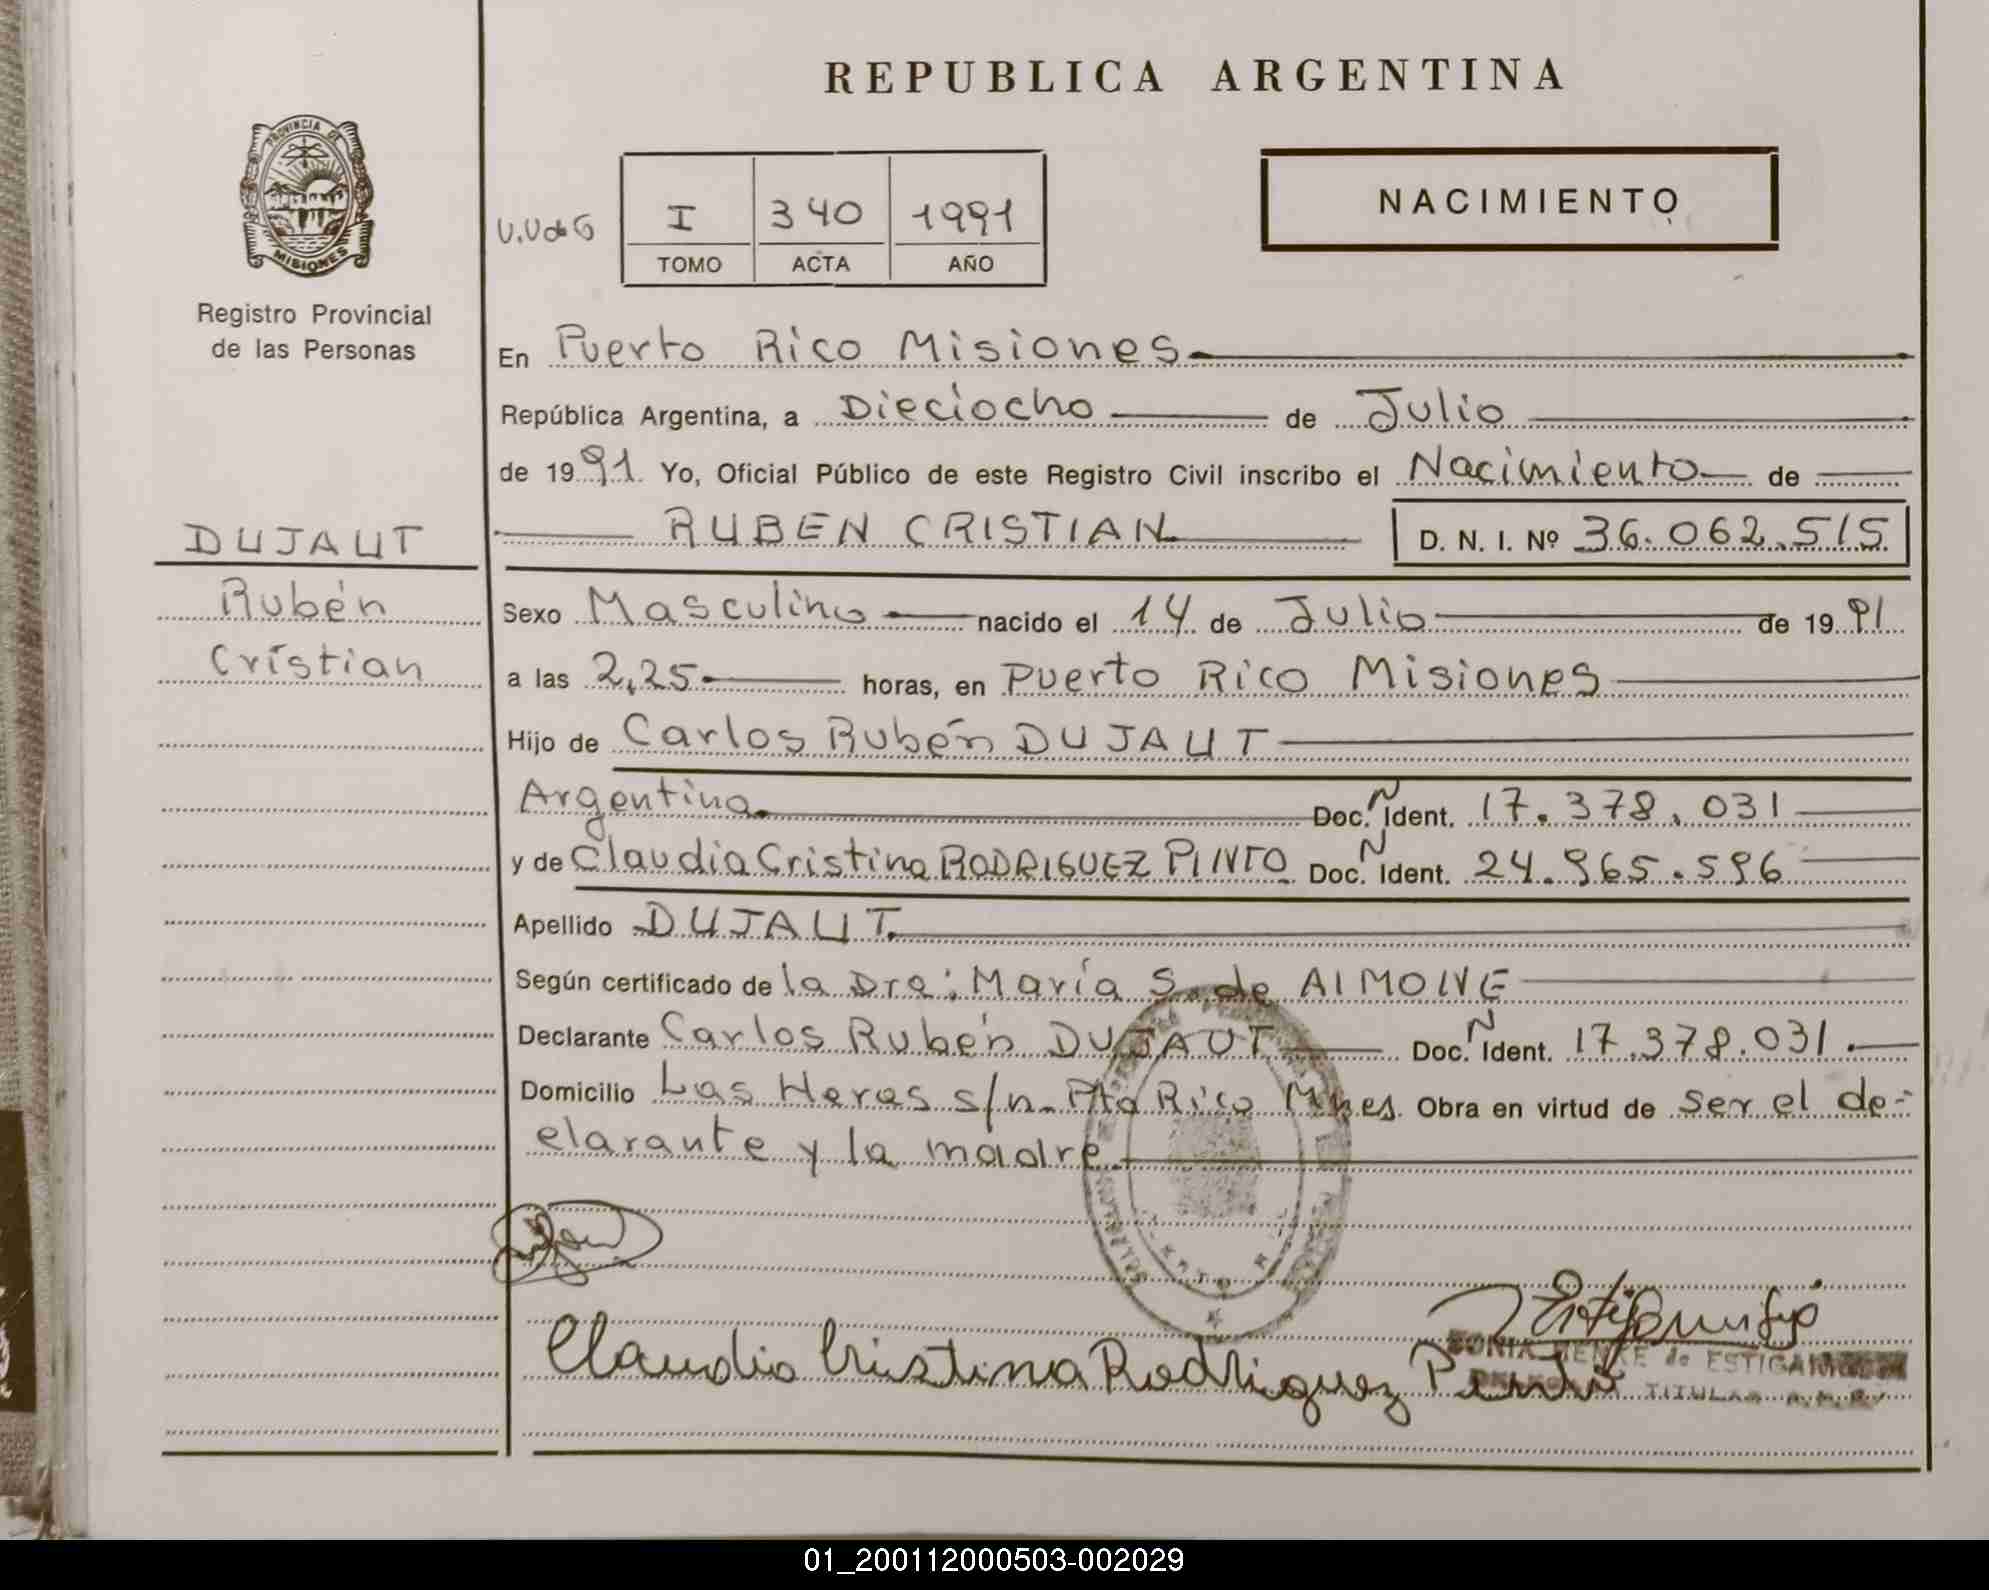 REPUBLICA ARGENTINA
PROVINCIA DE
MISIONES
Registro Provincial
de las Personas
U.U de G
I 340 1991
TOMO ACTA AÑO
NACIMIENTO
En Puerto Rico Misiones
República Argentina, a Dieciocho de Julio
de 1991 Yo, Oficial Público de este Registro Civil inscribo el Nacimiento de
RUBEN CRISTIAN D. N. I. Nº 36.062.515
DUJAUT
Rubén
Cristian
Sexo Masculino nacido el 14 de Julio de 1991
a las 2,25 horas, en Puerto Rico Misiones
Hijo de Carlos Rubén DUJAUT
Argentina Doc. N Ident. 17.378.031
y de Claudia Cristina RODRIGUEZ PINTO Doc. N Ident. 24.965.596
Apellido DUJAUT
Según certificado de la Dra: María S. de AIMONE
Declarante Carlos Rubén DUJAUT Doc. N Ident. 17.378.031.
Domicilio Las Heras s/n. Pto Rico Mnes. Obra en virtud de ser el de-
clarante y la madre
Claudia Cristina Rodriguez Pinto
SONIA de
TITULAR
01_200112000503-002029